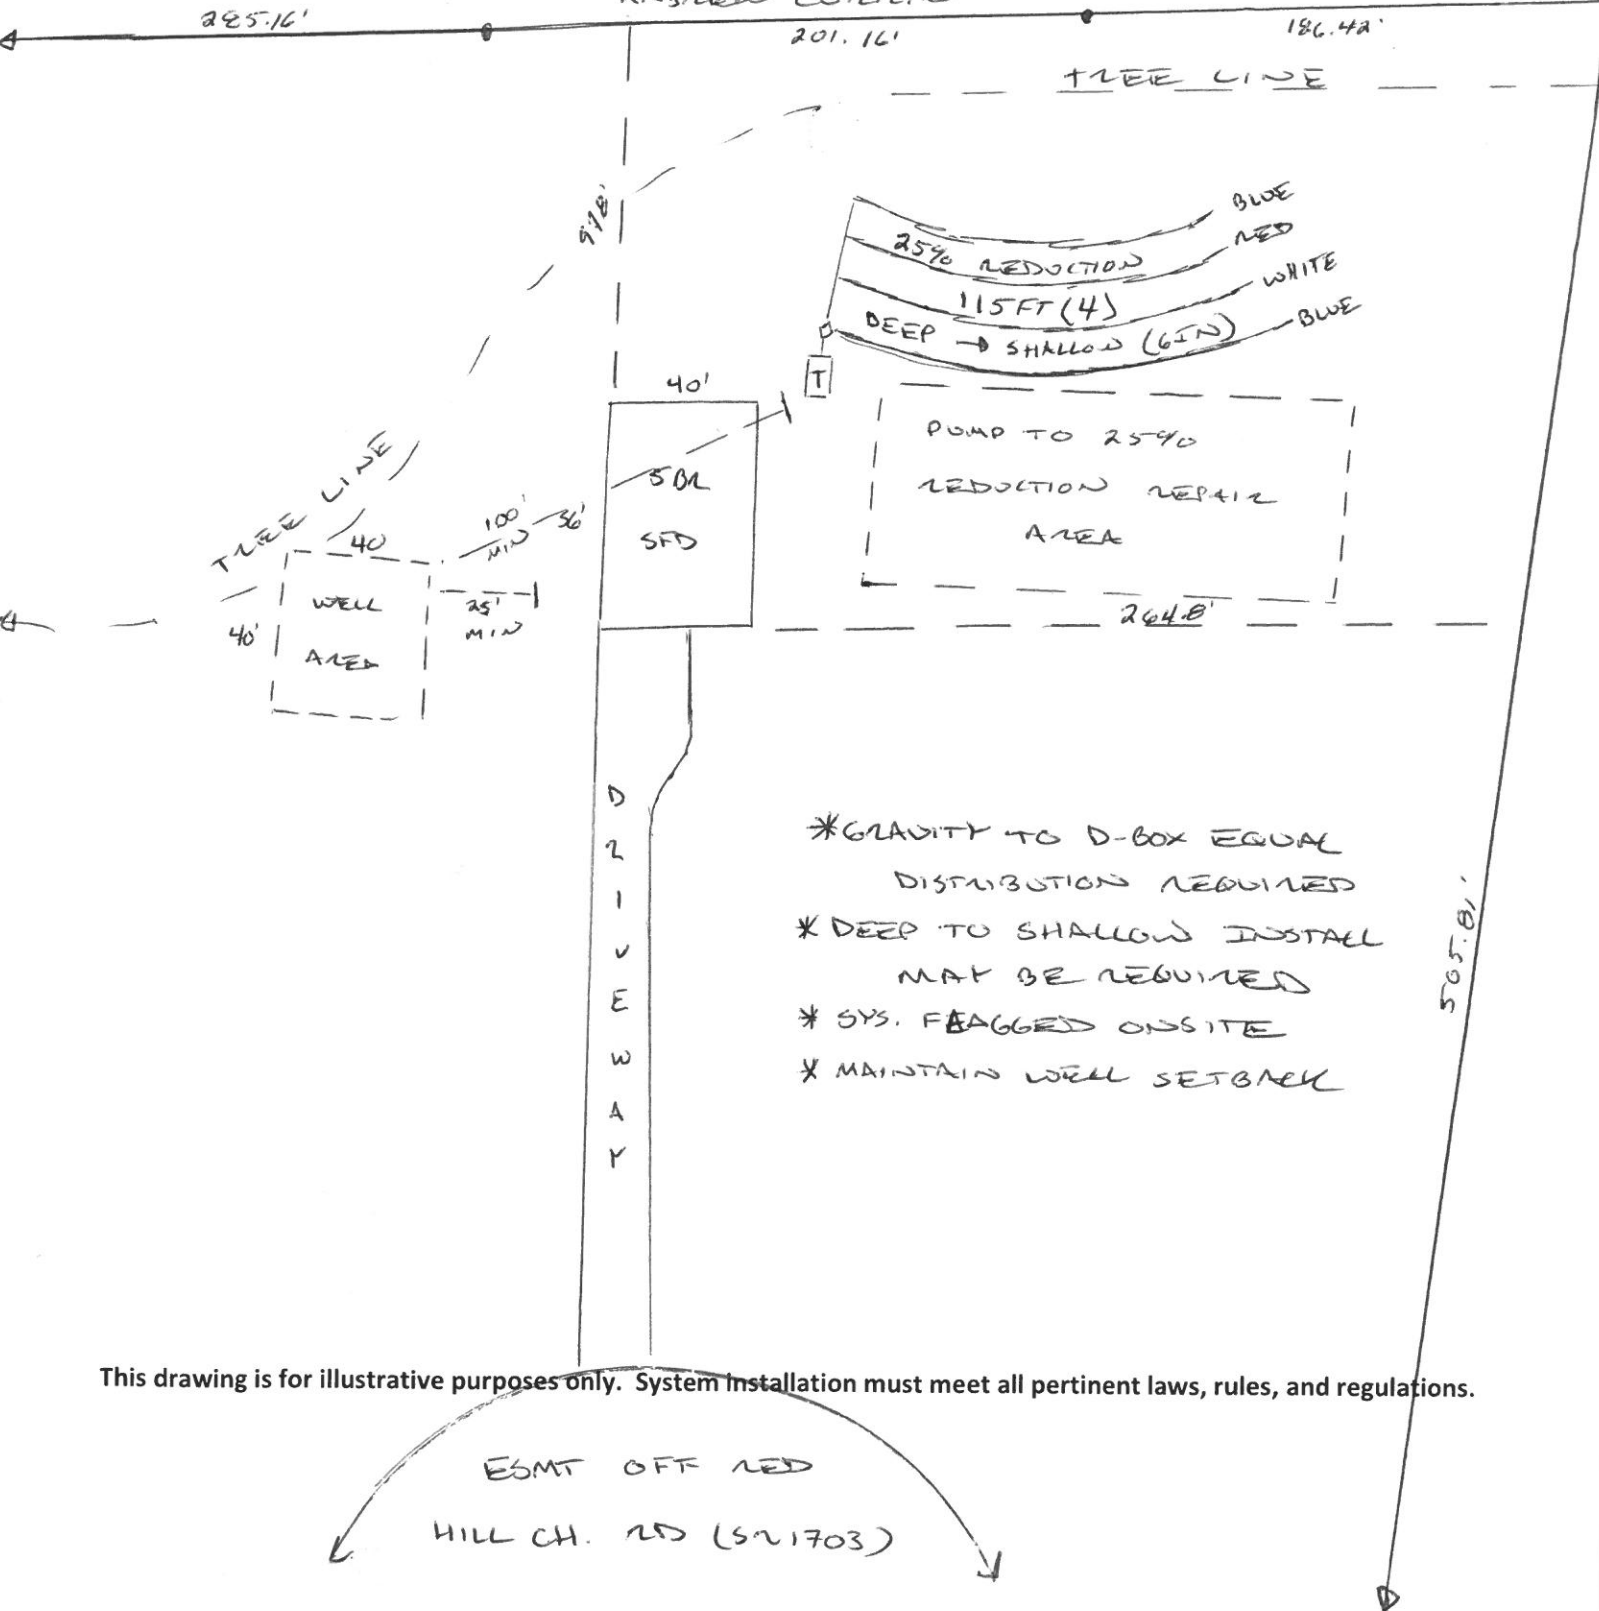 285.16'
201.16'
186.42'
TREE LINE
BLUE
25% REDUCTION
RED
115FT (4)
WHITE
DEEP → SHALLOW (6IN)
BLUE
T
40'
5 BR
SFD
PUMP TO 25%
REDUCTION REPAIR
AREA
264.8'
TREE LINE
40
100'
MIN
36'
WELL
AREA
40'
25'
MIN
DRIVEWAY
*GRAVITY TO D-BOX EQUAL
DISTRIBUTION REQUIRED
* DEEP TO SHALLOW INSTALL
MAY BE REQUIRED
* SYS. FLAGGED ONSITE
* MAINTAIN WELL SETBACK
505.81'
This drawing is for illustrative purposes only. System installation must meet all pertinent laws, rules, and regulations.
ESMT OFF RED
HILL CH. RD (SR1703)